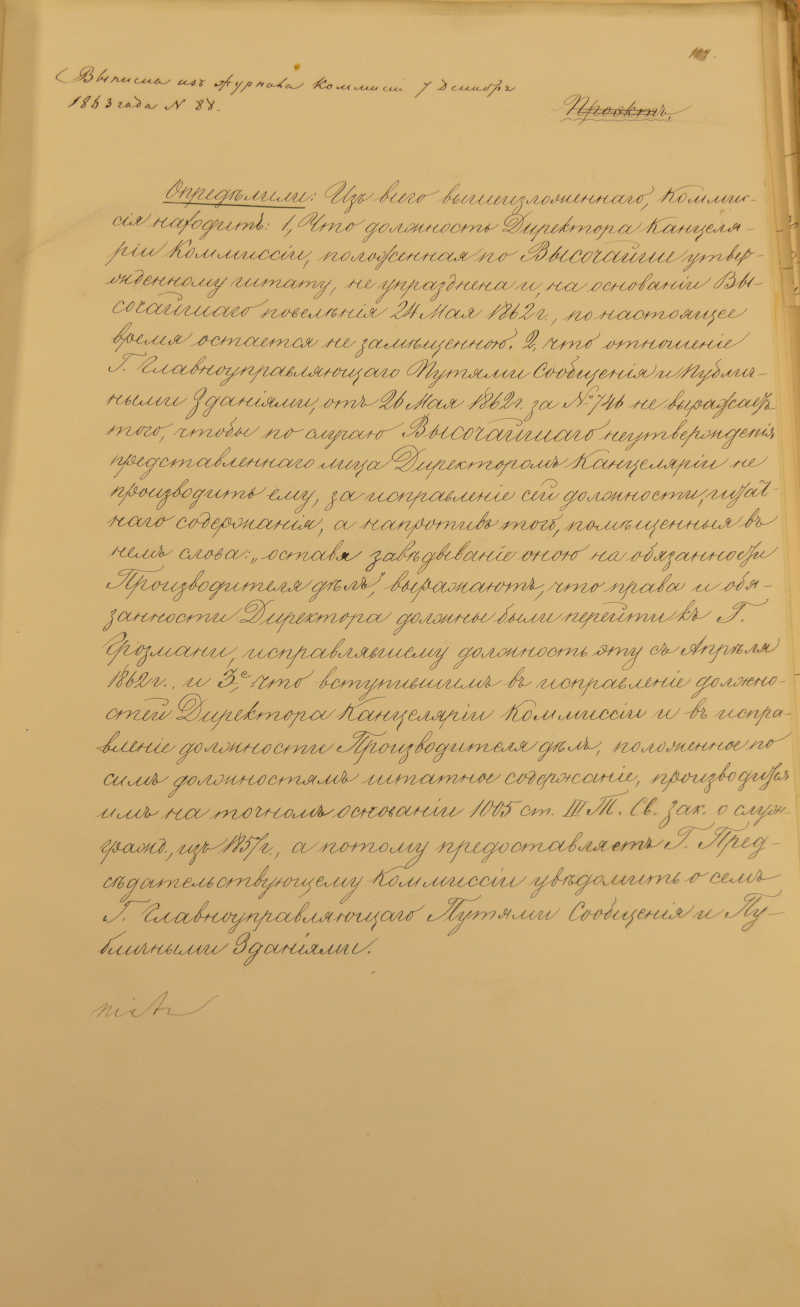 Выписка изъ журнала Коммисіи 7 Декабря
1863 года N 88.
Проектъ,
Опредѣлили: Изъ всего вышеизложеннаго, Коммис-
сія находитъ: 1, Что должность Директора Канцеля-
ріи Коммиссіи, положенная по Высочайше утвер-
жденному штату, не упразднена и, на основаніи Вы-
сочайшаго повелѣнія 24 Мая 1862 г., по настоящее
время остается не замѣщенною. 2, что отношеніе
Г. Главноуправляющаго Путями Сообщенія и Публич-
ными Зданіями, отъ 26 Мая 1862 г. за № 746 не выражаетъ
того, чтобы по случаю Высочайшаго неутвержденія
представленнаго лица Директоромъ Канцеляріи не
производить ему, за исправленіе сей должности, штат-
наго содержанія, а напротивъ того, помѣщенныя въ
немъ слова: „оставя завѣдываніе оною на обязанности
Производителя дѣлъ", выражаютъ, что права и обя-
занности Директора должны были перейти къ Г.
Грозмани, исправлявшему должность эту съ Апрѣля
1862 г., и 3,е что вступившимъ въ исправленіе должно-
стей Директора Канцеляріи Коммиссіи и въ испра-
вленіе должности Производителя дѣлъ, положенное по
симъ должностямъ штатное содержаніе, производится
имъ на точномъ основаніи 1005 ст. III Т. Св. Зак. о служ.
гражд., изд. 1857 г., а потому предоставляетъ Г. Пред-
сѣдательствующему Коммиссіи увѣдомить о семъ
Г. Главноуправляющаго Путями Сообщенія и Пу-
бличными Зданіями.